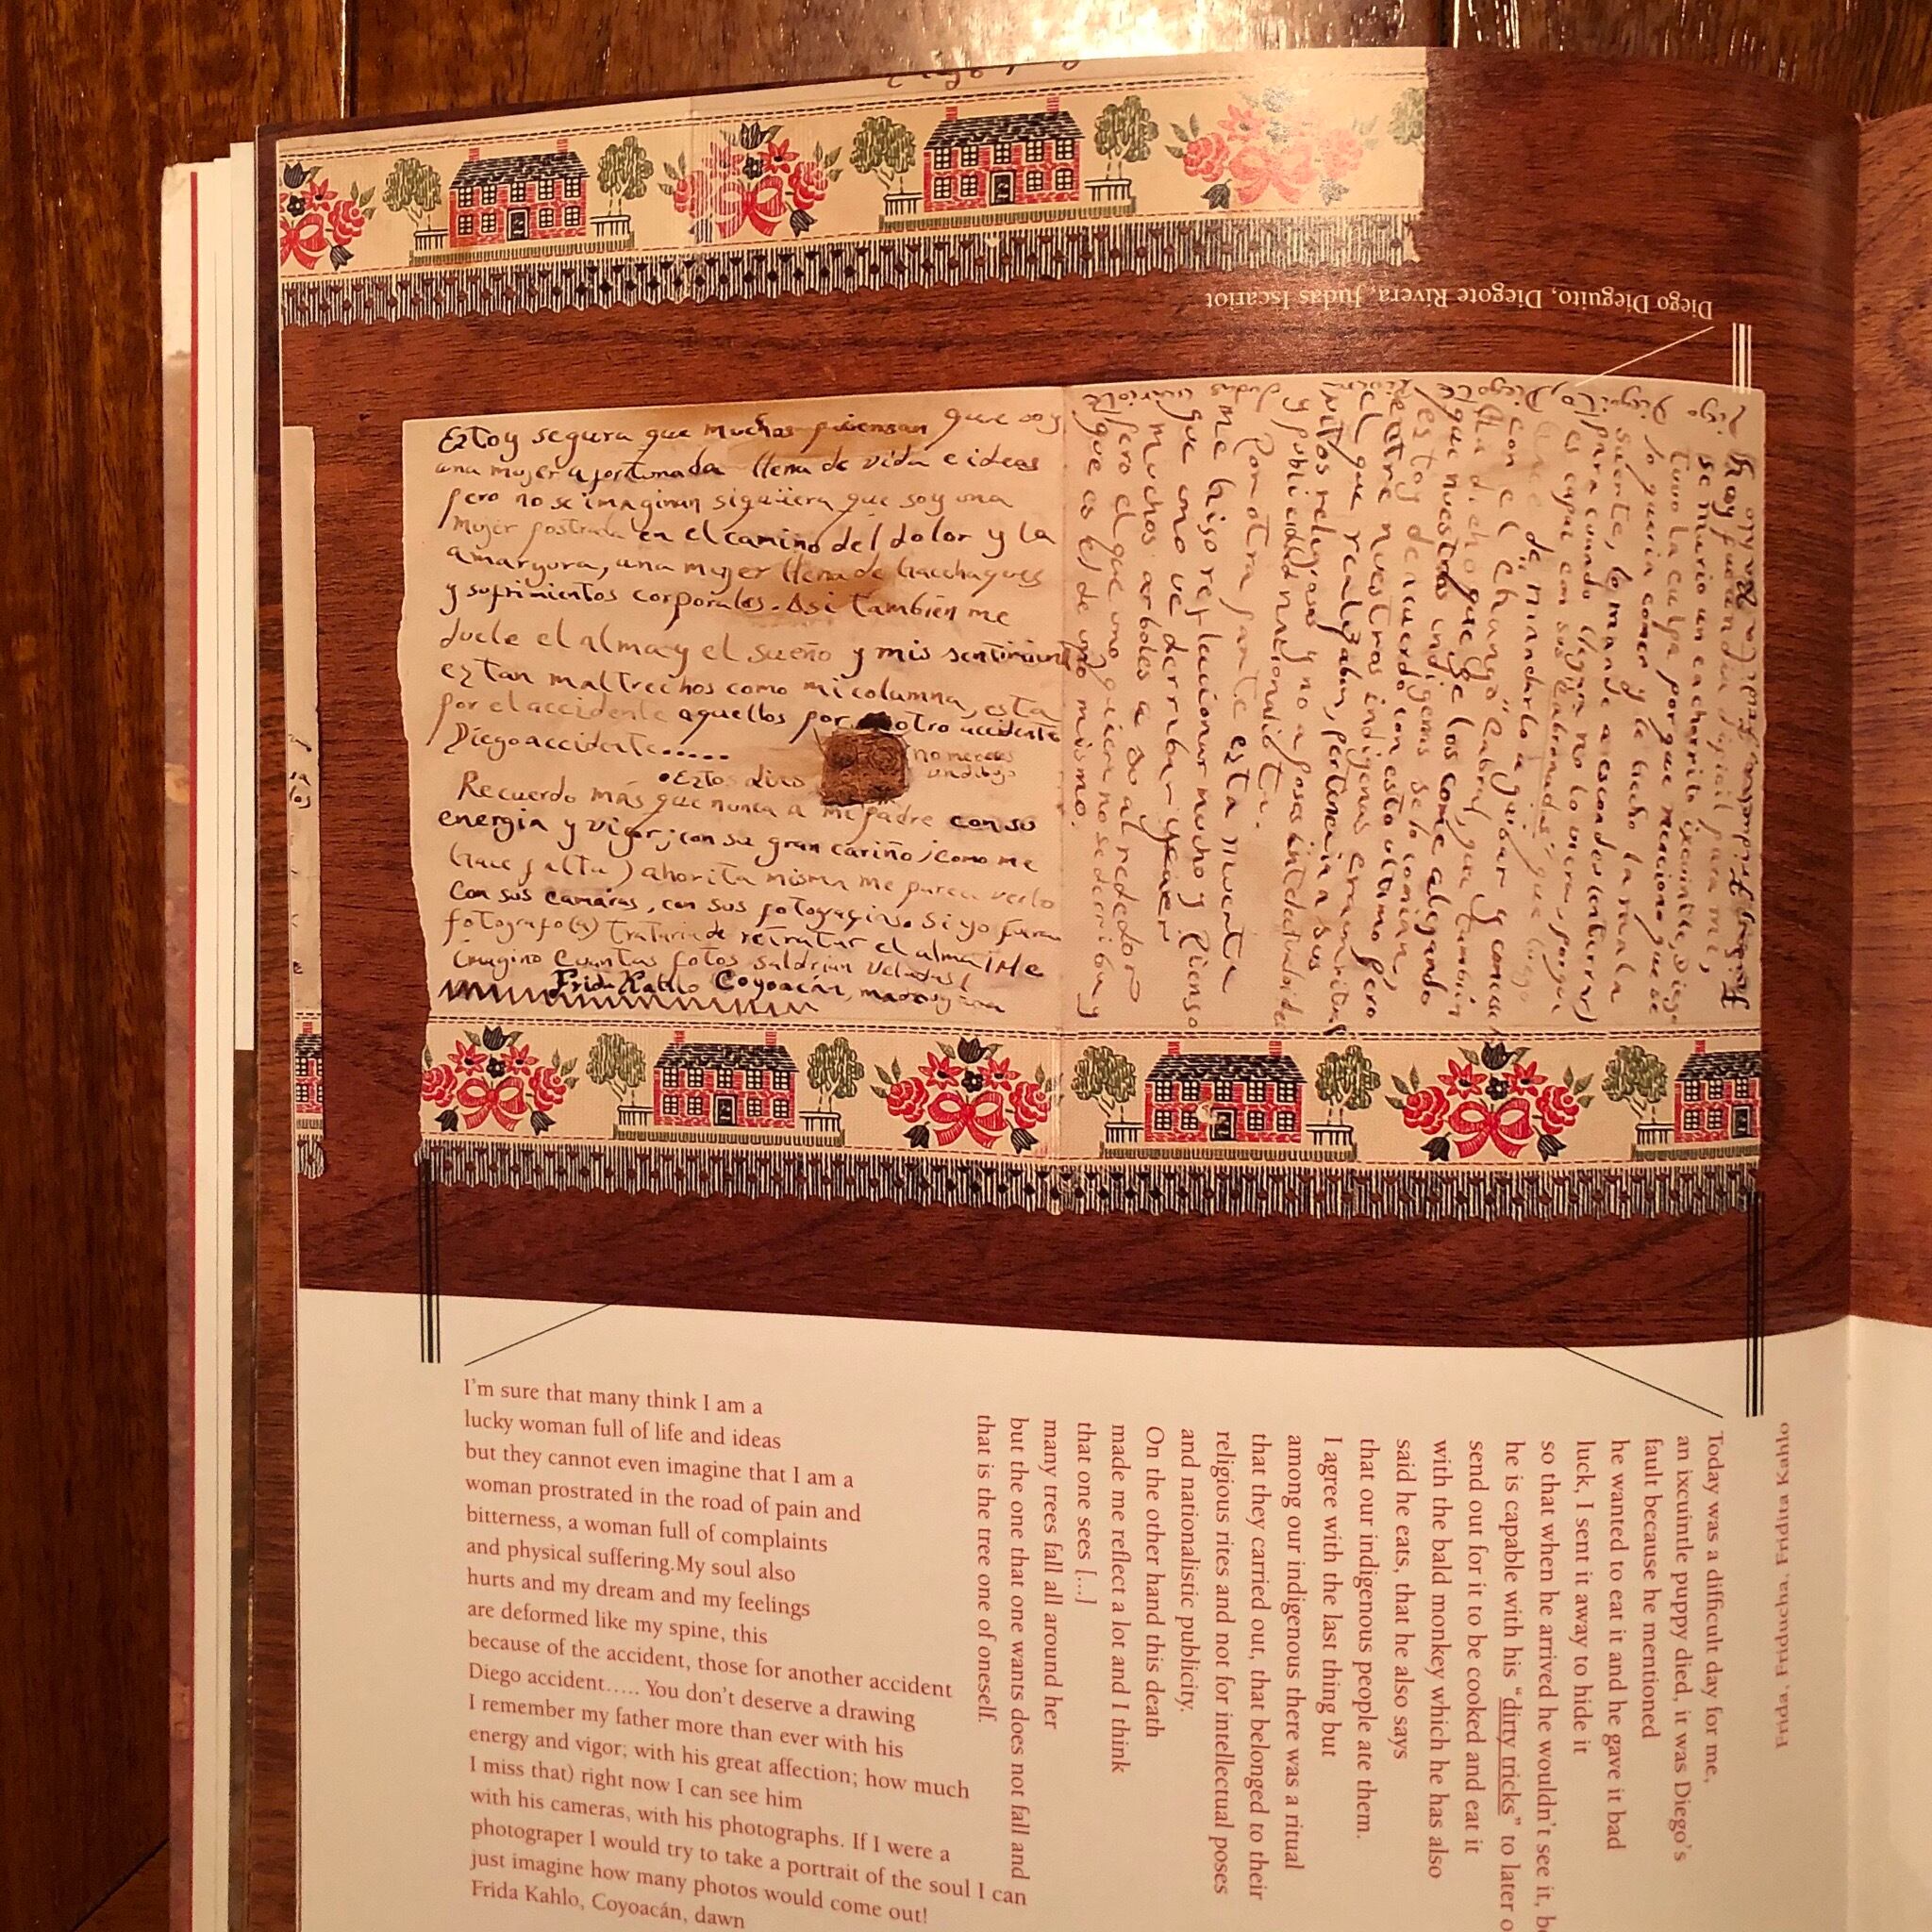 Diego Dieguito, Diegote Rivera, Judas Iscariot
Estoy segura que muchos piensan que soy
una mujer afortunada llena de vida e ideas
pero no se imaginan siquiera que soy una
mujer postrada en el camino del dolor y la
amargura, una mujer llena de hacchaques
y sufrimientos corporales. Asi también me
duele el alma y el sueño y mis sentimient
estan maltrechos como mi columna, esta
por el accidente aquellos por otro accidente
Diego accidente.....
no mereces
un dibujo
Estos dias
Recuerdo más que nunca a mi padre con su
energia y vigor; con su gran cariño ¡como me
hace falta) ahorita misma me parece verlo
con sus camaras, con sus fotografias. Si yo fuera
fotografo(a) trataria de retratar el alma ¡Me
imagino cuantas fotos saldrian veladas!
Frida Kahlo Coyoacán, madrugada
Hoy fue un dia dificil para mi,
se murio un cachorrito ixcuintle, Diego
tuvo la culpa porque menciono que se
lo queria comer y le hecho la mala
suerte, lo mande a esconder
para cuando llegara no lo viera, porque
es capaz con sus que luego
de mandarlo a guisar y comer
con el "Chango" Cabral, que tambien
ha dicho que se los come alegando
que nuestros indigenas se lo comian,
estoy de acuerdo con esto ultimo pero
entre nuestros indigenas era un ritual
el que realizaban, pertenecia a sus
ritos religiosos y no a poses intelectuales
y publicidad nacionalista.
Por otra parte esta muerte
me hiso reflexionar mucho y pienso
que uno ve derrumbar y caer
muchos arboles a su alrededor
pero el que uno quiere no se derrumba y
que es el de uno mismo.
I'm sure that many think I am a
lucky woman full of life and ideas
but they cannot even imagine that I am a
woman prostrated in the road of pain and
bitterness, a woman full of complaints
and physical suffering.My soul also
hurts and my dream and my feelings
are deformed like my spine, this
because of the accident, those for another accident
Diego accident..... You don't deserve a drawing
I remember my father more than ever with his
energy and vigor; with his great affection; how much
I miss that) right now I can see him
with his cameras, with his photographs. If I were a
photograper I would try to take a portrait of the soul I can
just imagine how many photos would come out!
Frida Kahlo, Coyoacán, dawn
Frida, Friducha, Fridita Kahlo
Today was a difficult day for me,
an ixcuintle puppy died, it was Diego's
fault because he mentioned
he wanted to eat it and he gave it bad
luck, I sent it away to hide it
so that when he arrived he wouldn't see it,
he is capable with his "dirty tricks" to later
send out for it to be cooked and eat it
with the bald monkey which he has also
said he eats, that he also says
that our indigenous people ate them.
I agree with the last thing but
among our indigenous there was a ritual
that they carried out, that belonged to their
religious rites and not for intellectual poses
and nationalistic publicity.
On the other hand this death
made me reflect a lot and I think
that one sees [...]
many trees fall all around her
but the one that one wants does not fall and
that is the tree one of oneself.